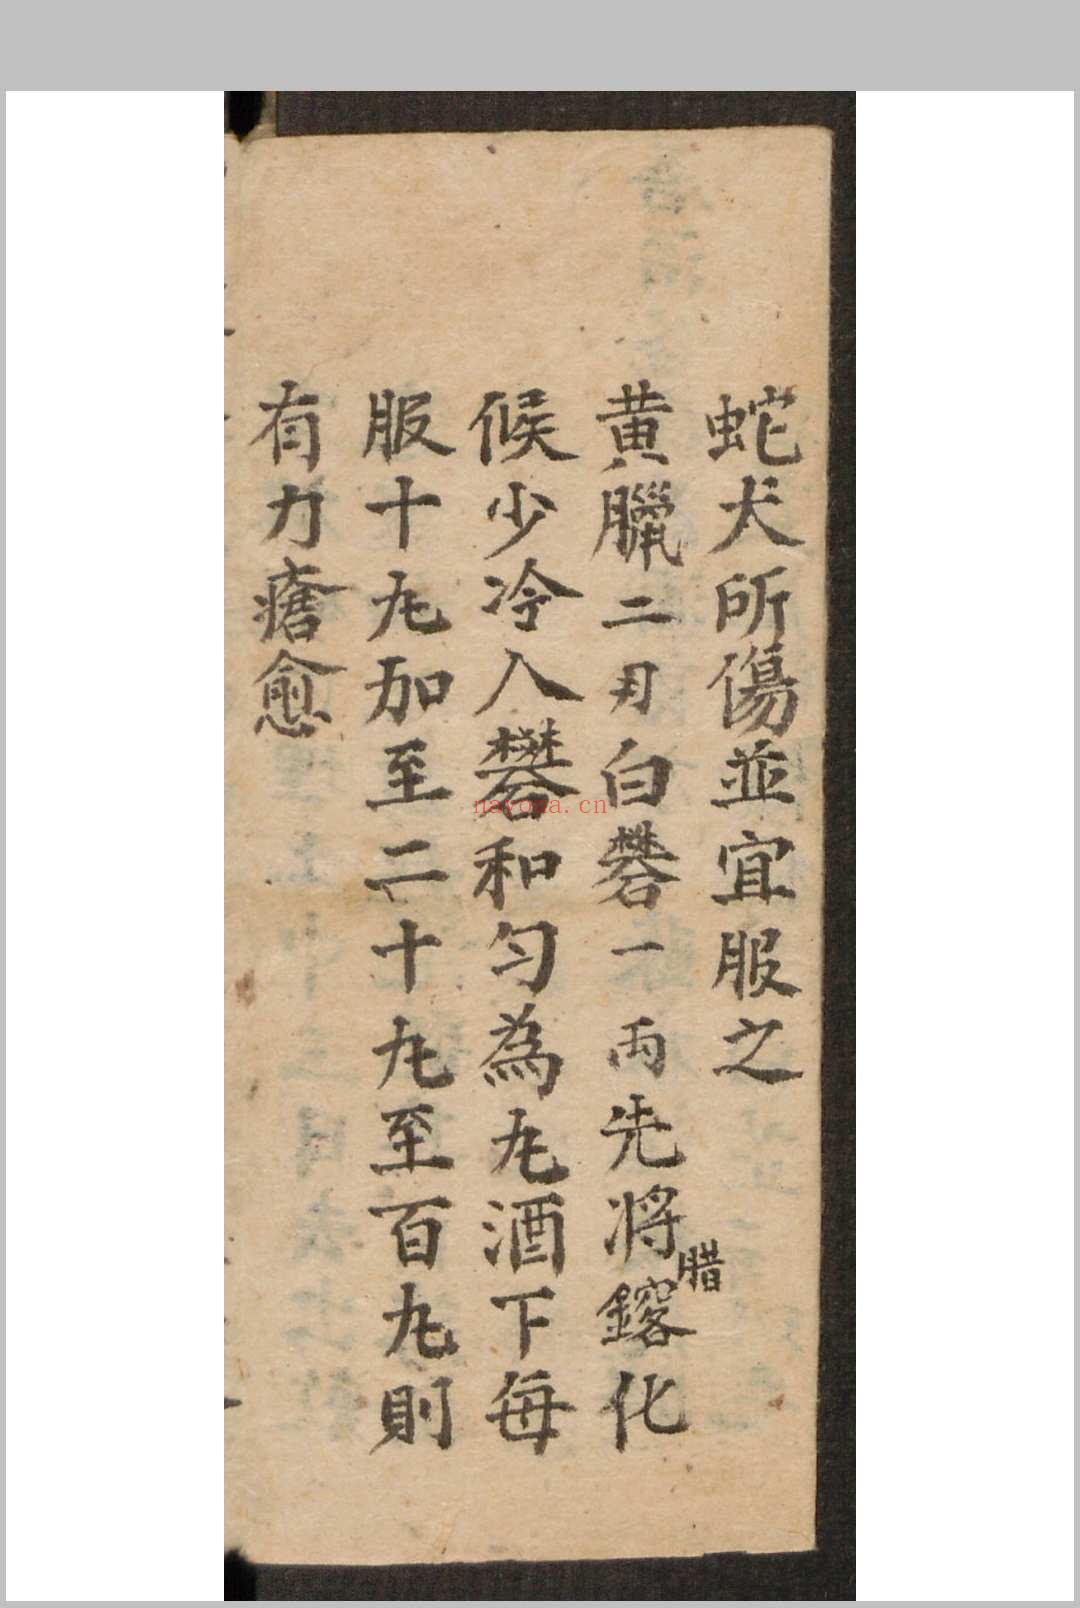 蛇犬所傷並宜服之
黄臘二刃白礬一両先將鎔化
腊
候少冷入礬和匀為丸酒下每
服十丸加至二十丸至百丸則
有力瘡愈
nayona.cn